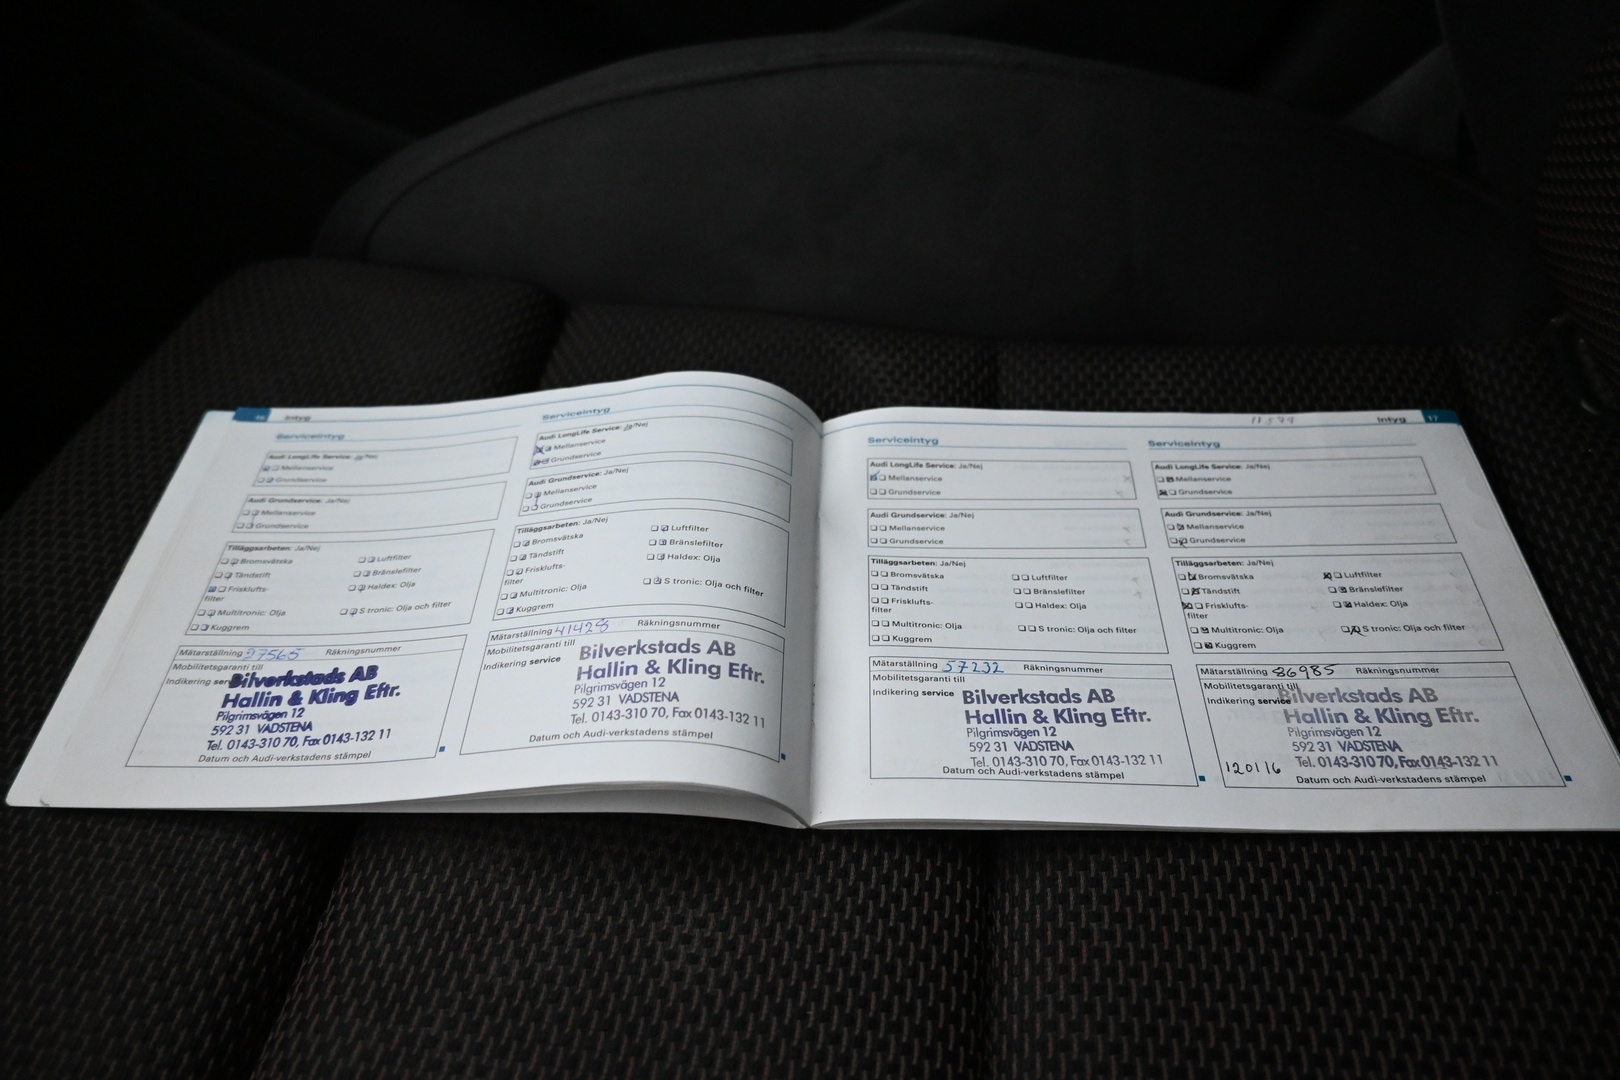 16 Intyg
Serviceintyg
Audi LongLife Service: Ja/Nej
Mellanservice
Grundservice
Audi Grundservice: Ja/Nej
Mellanservice
Grundservice
Tilläggsarbeten: Ja/Nej
Bromsvätska
Luftfilter
Tändstift
Bränslefilter
Frisklufts-
filter
Haldex: Olja
Multitronic: Olja
S tronic: Olja och filter
Kuggrem
Mätarställning 27565 Räkningsnummer
Mobilitetsgaranti till
Indikering ser
Bilverkstads AB
Hallin & Kling Eftr.
Pilgrimsvägen 12
592 31 VADSTENA
Tel. 0143-310 70, Fax 0143-132 11
Datum och Audi-verkstadens stämpel
Serviceintyg
Audi LongLife Service: Ja/Nej
Mellanservice
Grundservice
Audi Grundservice: Ja/Nej
Mellanservice
Grundservice
Tilläggsarbeten: Ja/Nej
Bromsvätska
Luftfilter
Tändstift
Bränslefilter
Frisklufts-
filter
Haldex: Olja
Multitronic: Olja
S tronic: Olja och filter
Kuggrem
Mätarställning 41428 Räkningsnummer
Mobilitetsgaranti till
Indikering service
Bilverkstads AB
Hallin & Kling Eftr.
Pilgrimsvägen 12
592 31 VADSTENA
Tel. 0143-310 70, Fax 0143-132 11
Datum och Audi-verkstadens stämpel
Intyg 17
Serviceintyg
Audi LongLife Service: Ja/Nej
Mellanservice
Grundservice
Audi Grundservice: Ja/Nej
Mellanservice
Grundservice
Tilläggsarbeten: Ja/Nej
Bromsvätska
Luftfilter
Tändstift
Bränslefilter
Frisklufts-
filter
Haldex: Olja
Multitronic: Olja
S tronic: Olja och filter
Kuggrem
Mätarställning 57232 Räkningsnummer
Mobilitetsgaranti till
Indikering service
Bilverkstads AB
Hallin & Kling Eftr.
Pilgrimsvägen 12
592 31 VADSTENA
Tel. 0143-310 70, Fax 0143-132 11
Datum och Audi-verkstadens stämpel
Serviceintyg
Audi LongLife Service: Ja/Nej
Mellanservice
Grundservice
Audi Grundservice: Ja/Nej
Mellanservice
Grundservice
Tilläggsarbeten: Ja/Nej
Bromsvätska
Luftfilter
Tändstift
Bränslefilter
Frisklufts-
filter
Haldex: Olja
Multitronic: Olja
S tronic: Olja och filter
Kuggrem
Mätarställning 86985 Räkningsnummer
Mobilitetsgaranti till
Indikering service
Bilverkstads AB
Hallin & Kling Eftr.
Pilgrimsvägen 12
592 31 VADSTENA
Tel. 0143-310 70, Fax 0143-132 11
120116
Datum och Audi-verkstadens stämpel